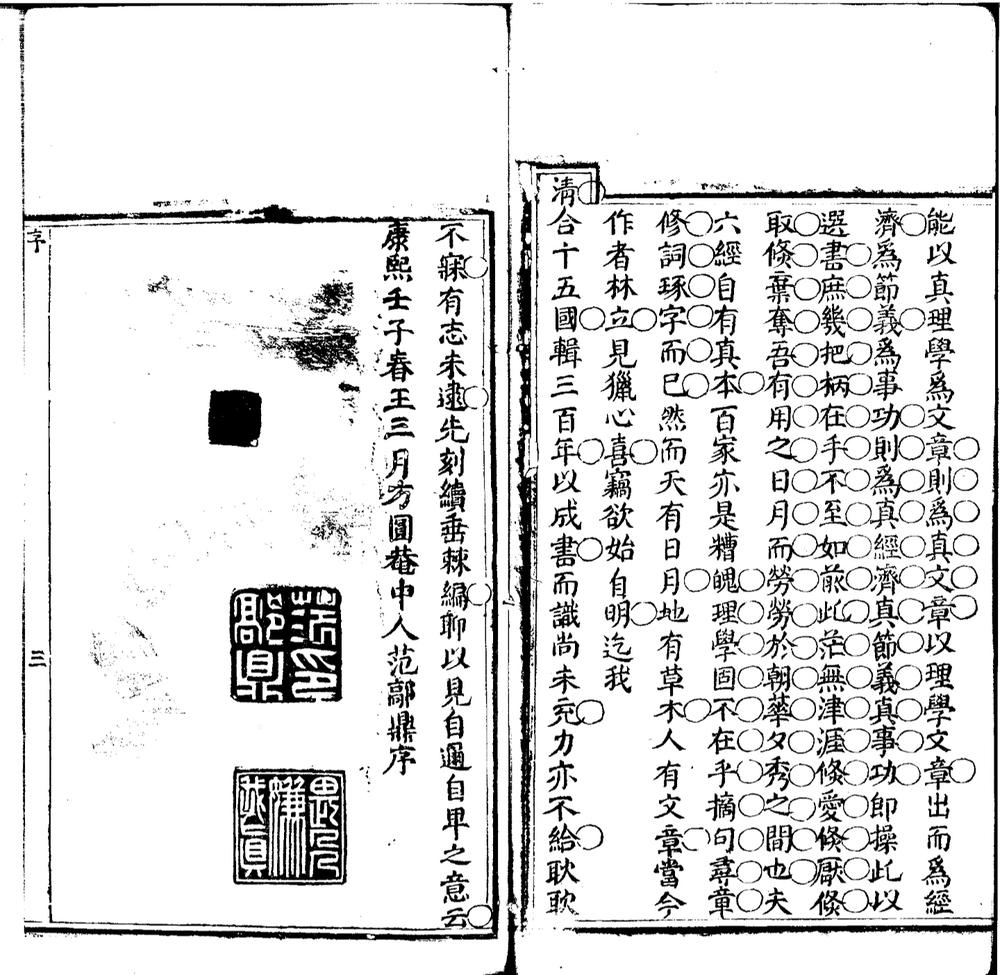 能以真理學爲文章則爲真文章以理學文章出而爲經
濟爲節義爲事功則爲真經濟真節義真事功即操此以
選書庶幾把柄在手不至如前此茫無津涯倐愛倐厭倐
取倐棄奪吾有用之日月而勞勞於朝華夕秀之間也夫
六經自有真本百家亦是糟魄理學固不在乎摘句尋章
修詞琢字而已然而天有日月地有草木人有文章當今
作者林立見獵心喜竊欲始自明迄我
清合十五國輯三百年以成書而識尚未充力亦不給耿耿
不寐有志未逮先刻續垂棘編聊以見自邇自卑之意云
康熙壬子春王三月方圓菴中人范鄗鼎序
范印鄗鼎
畏人嫌我真
序
三